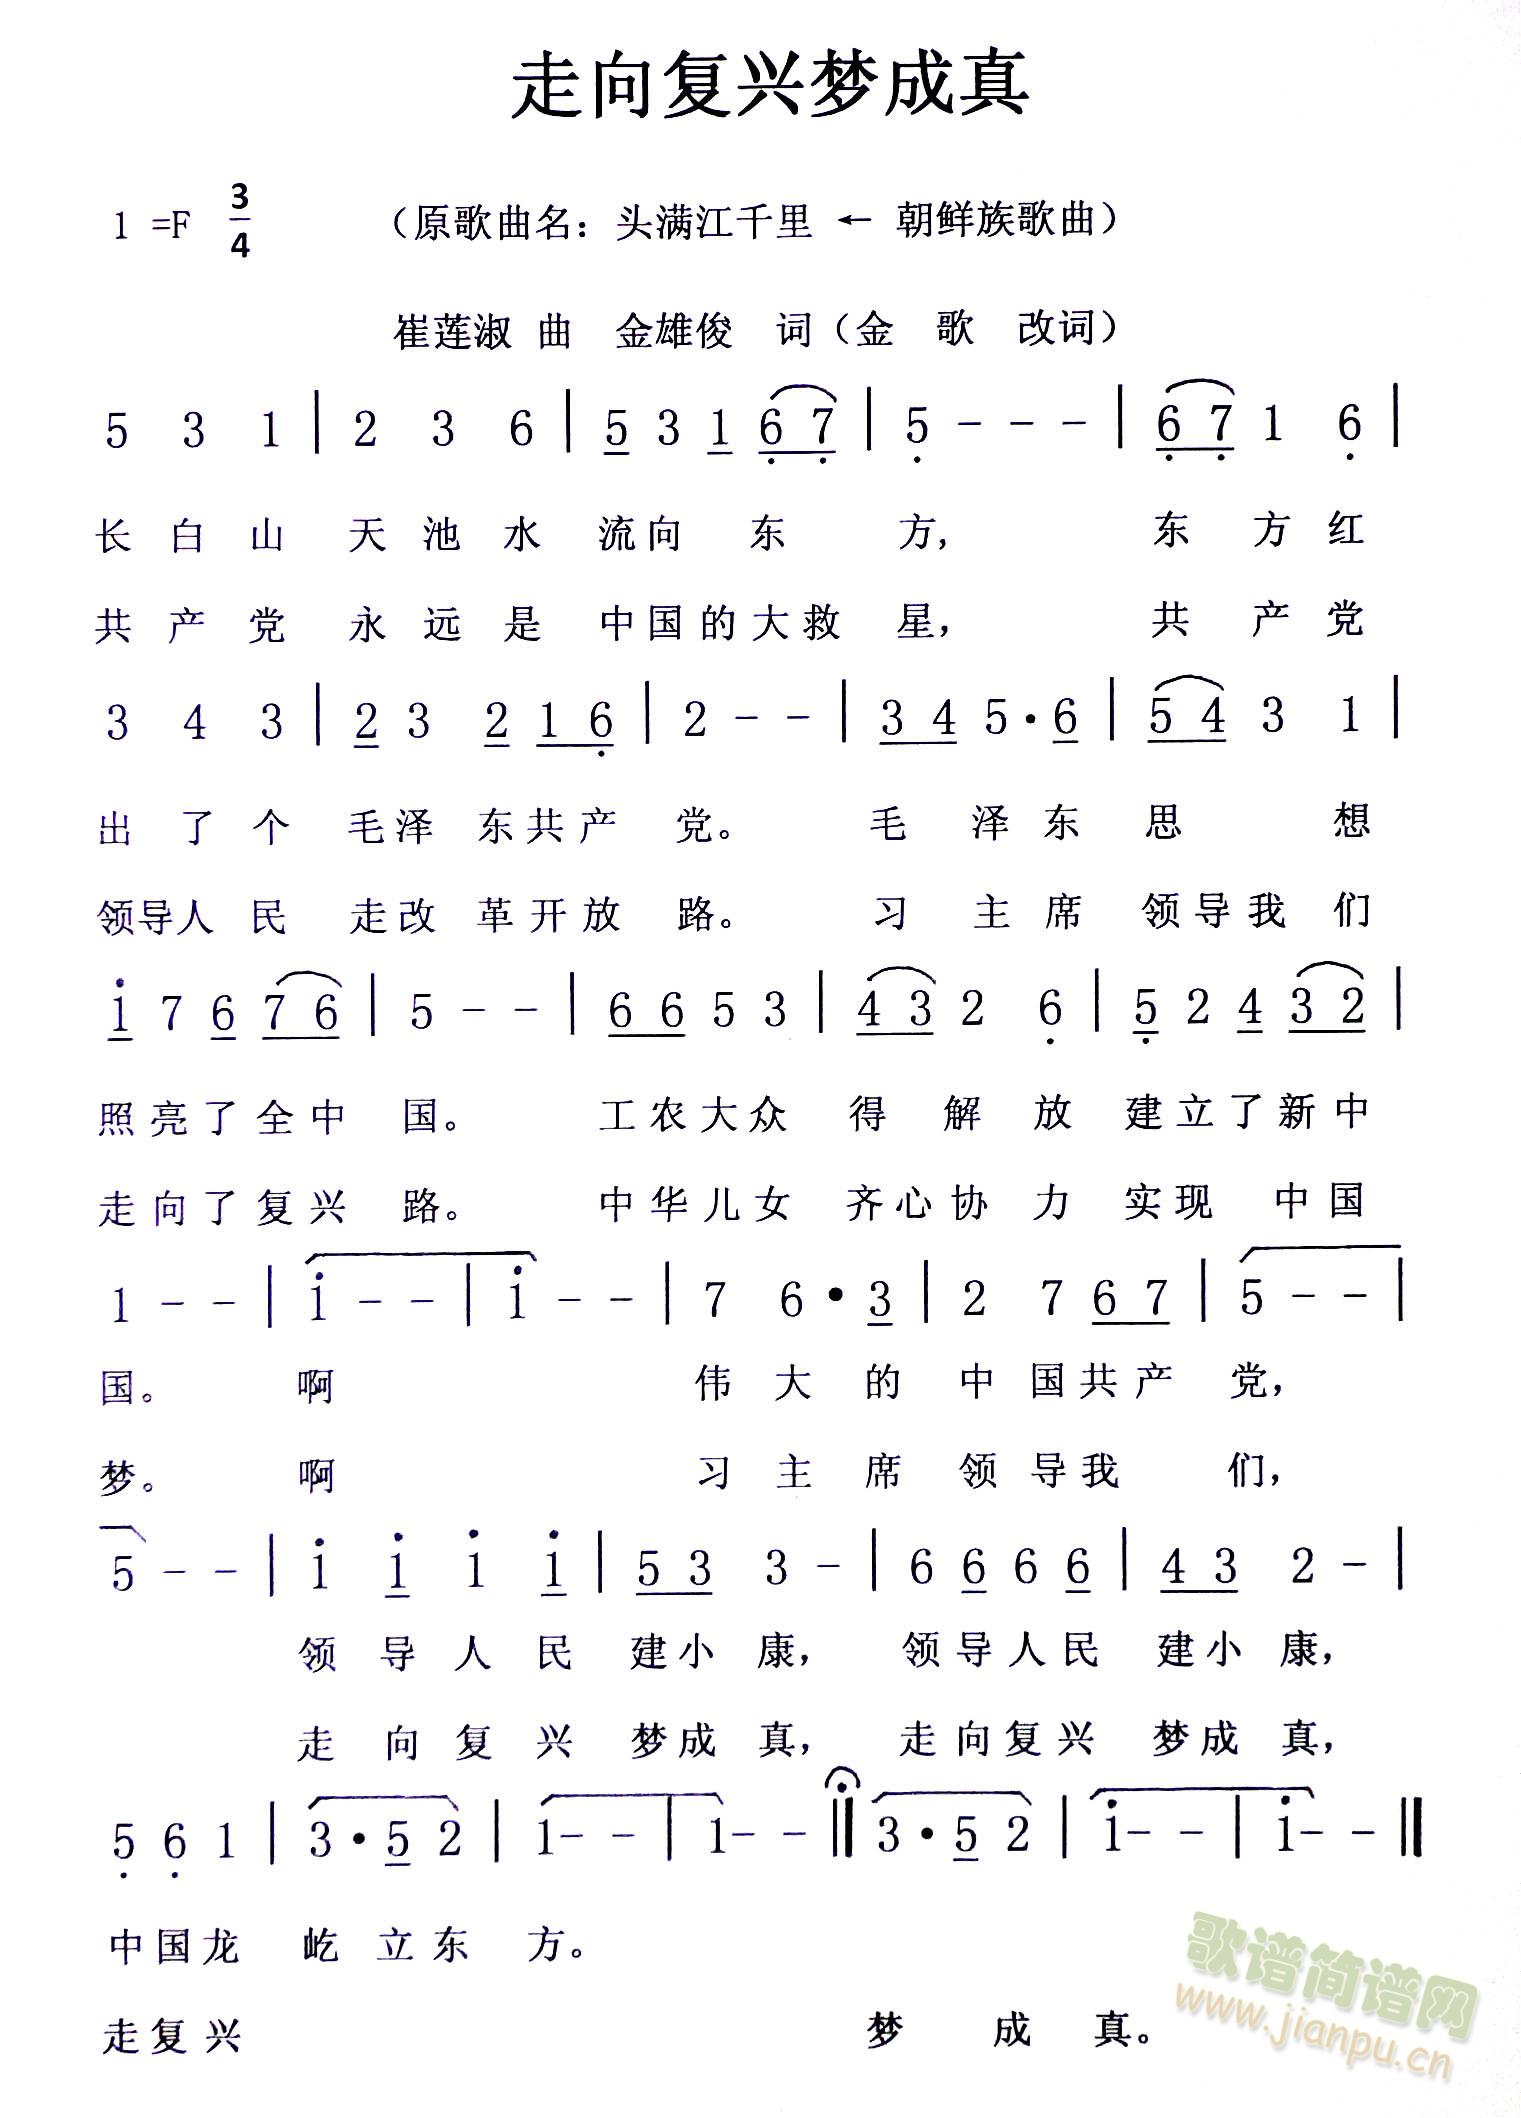 走向复兴梦成真
1 =F 3/4 （原歌曲名：头满江千里 ← 朝鲜族歌曲）
崔莲淑 曲 金雄俊 词（金 歌 改词）
5 3 1 | 2 3 6 | 5 3 1 6 7 | 5 - - - | 6 7 1 6 |
长 白 山 天 池 水 流 向 东 方, 东 方 红
共 产 党 永 远 是 中 国 的 大 救 星, 共 产 党
3 4 3 | 2 3 2 1 6 | 2 - - | 3 4 5 · 6 | 5 4 3 1 |
出 了 个 毛 泽 东 共 产 党。 毛 泽 东 思 想
领 导 人 民 走 改 革 开 放 路。 习 主 席 领 导 我 们
1 7 6 7 6 | 5 - - | 6 6 5 3 | 4 3 2 6 | 5 2 4 3 2 |
照 亮 了 全 中 国。 工 农 大 众 得 解 放 建 立 了 新 中
走 向 了 复 兴 路。 中 华 儿 女 齐 心 协 力 实 现 中 国
1 - - | 1 - - | 1 - - | 7 6 · 3 | 2 7 6 7 | 5 - - |
国。 啊 伟 大 的 中 国 共 产 党,
梦。 啊 习 主 席 领 导 我 们,
5 - - | 1 1 1 1 | 5 3 3 - | 6 6 6 6 | 4 3 2 - |
领 导 人 民 建 小 康, 领 导 人 民 建 小 康,
走 向 复 兴 梦 成 真, 走 向 复 兴 梦 成 真,
5 6 1 | 3 · 5 2 | 1 - - | 1 - - ‖ 3 · 5 2 | 1 - - | 1 - - ‖
中 国 龙 屹 立 东 方。
走 复 兴 梦 成 真。
歌谱简谱网
www.jianpu.cn